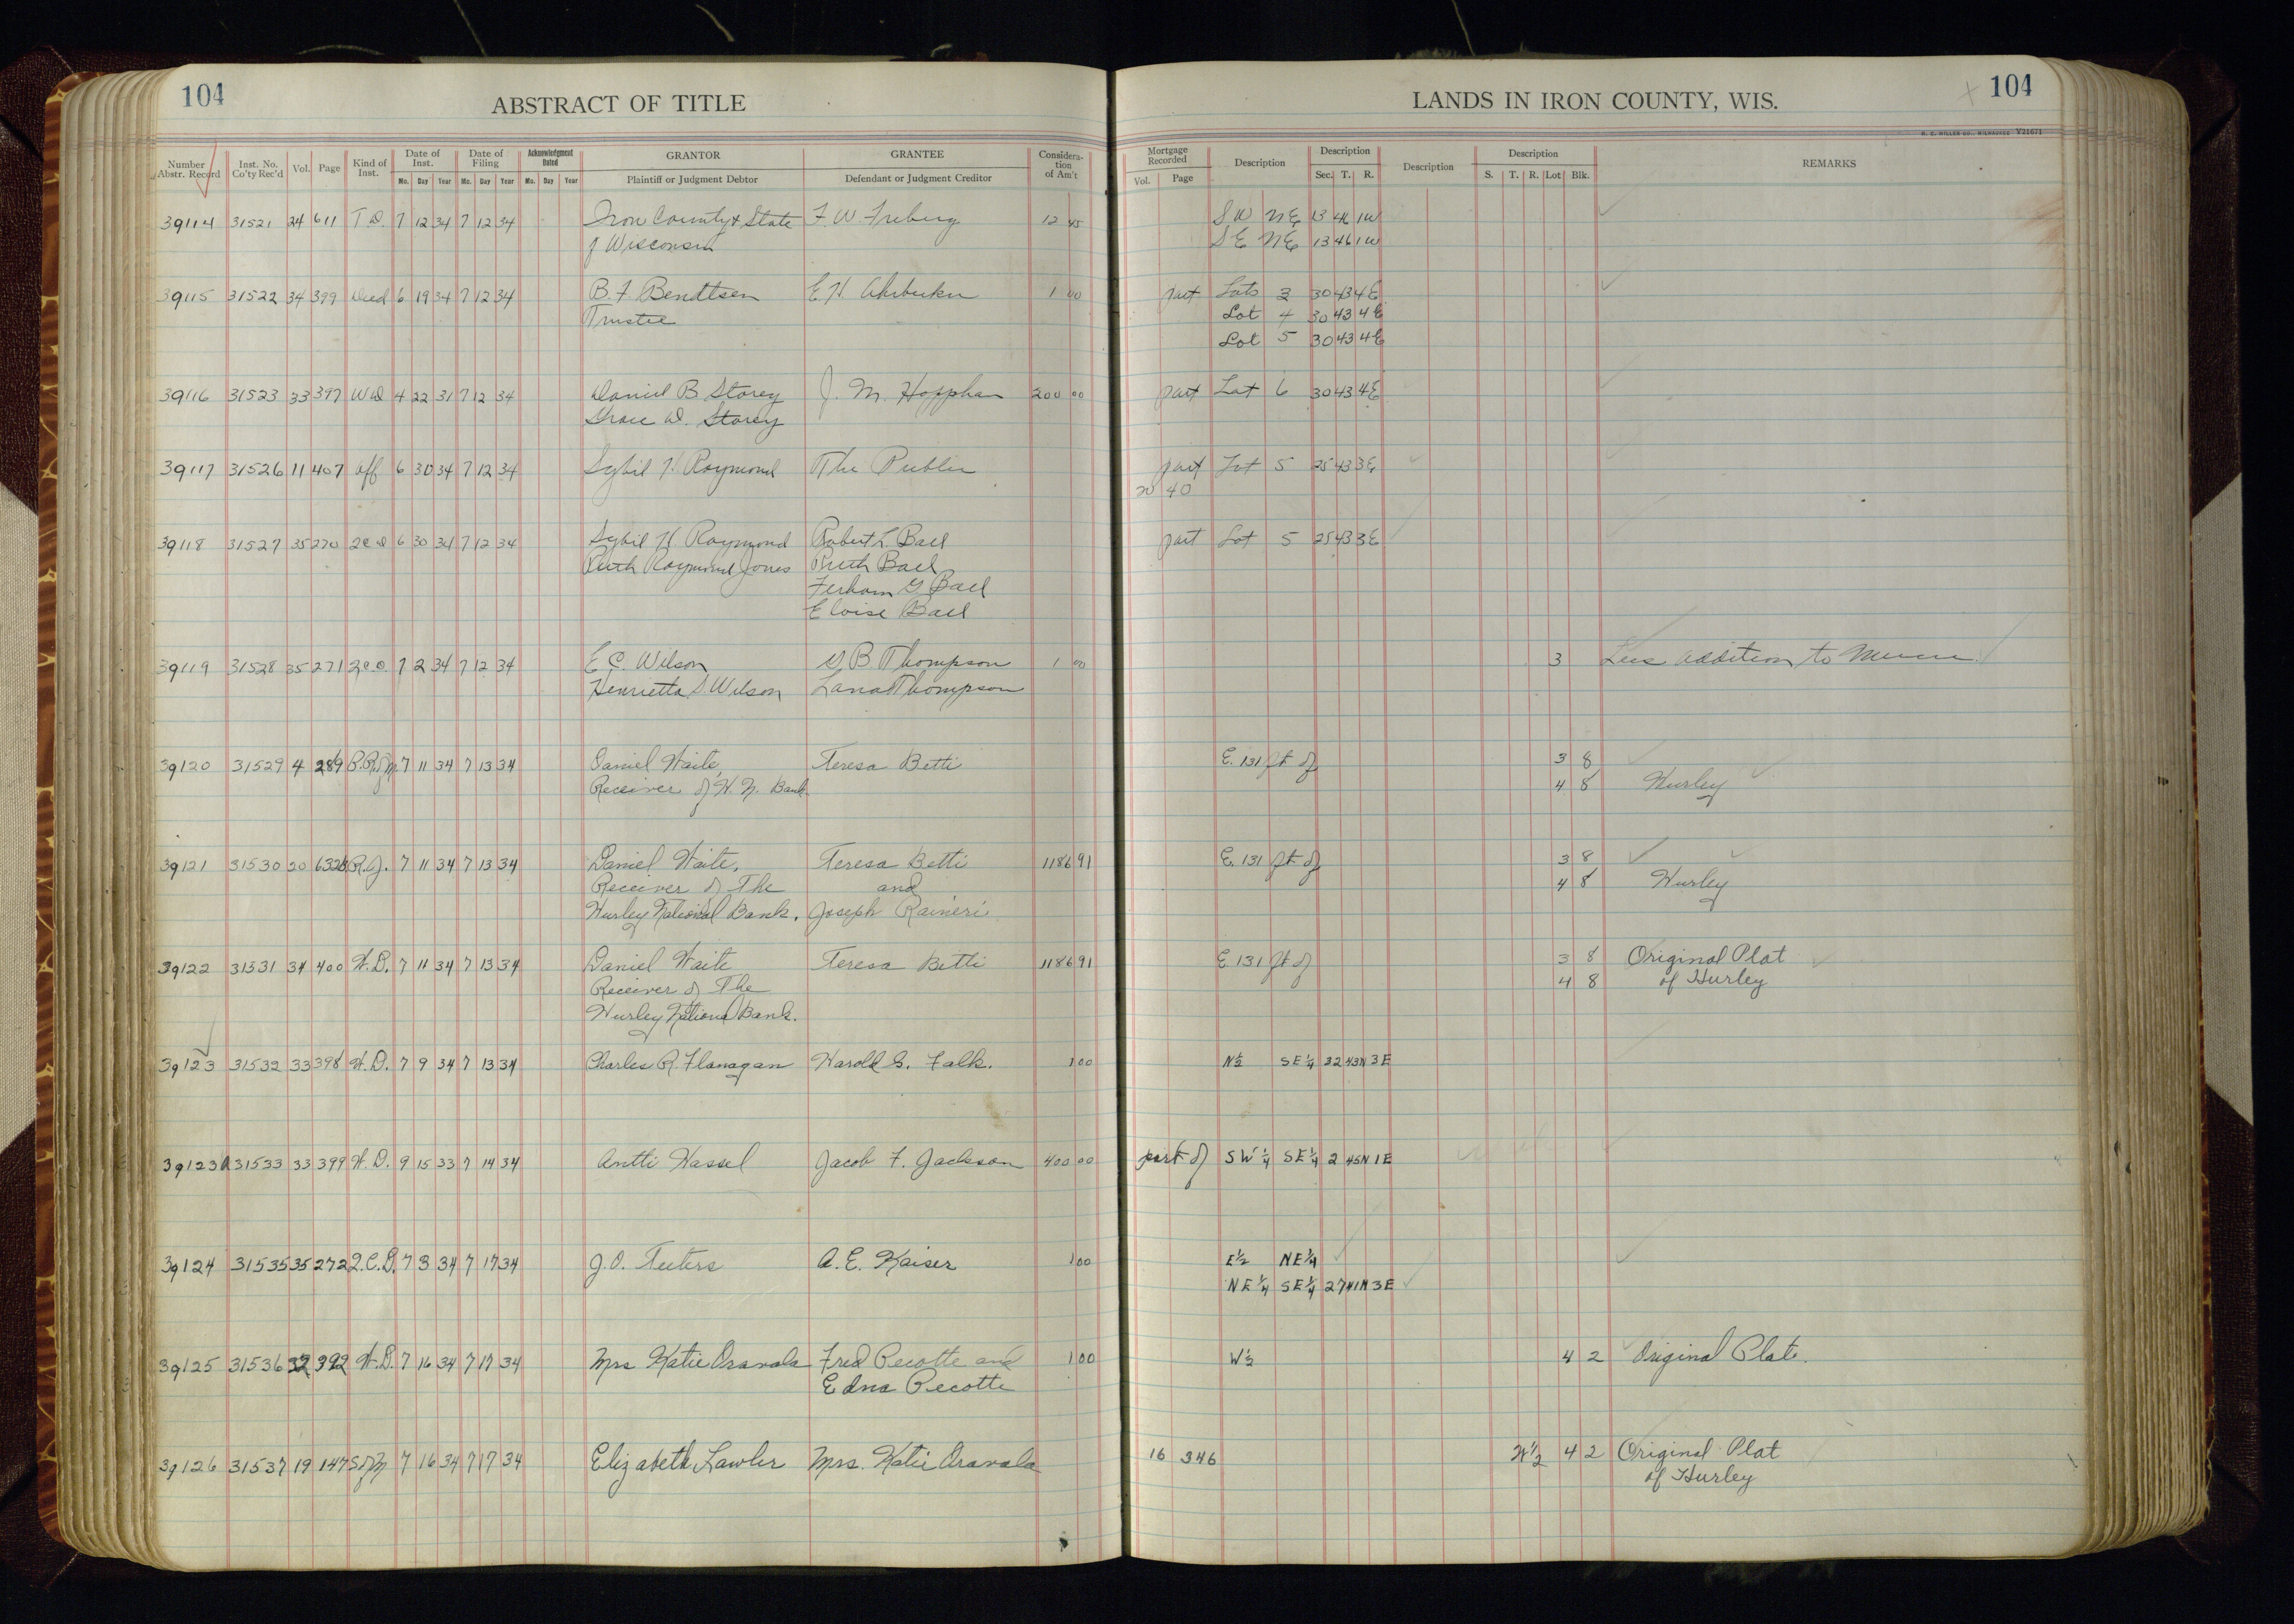 104
ABSTRACT OF TITLE
LANDS IN IRON COUNTY, WIS.
104
H. C. MILLER CO., MILWAUKEE Y21671
Number Abstr. Record Inst. No. Co'ty Rec'd Vol. Page Kind of Inst. Date of Inst. Mo. Day Year Date of Filing Mo. Day Year Acknowledgment Dated Mo. Day Year GRANTOR Plaintiff or Judgment Debtor GRANTEE Defendant or Judgment Creditor Considera-tion of Am't Mortgage Recorded Vol. Page Description Description Sec. T. R. Description Description S. T. R. Lot Blk. REMARKS
39114 31521 24 611 T D. 7 12 34 7 12 34 Iron County & State F. W. Freberg 12 45 SW NE 13 46 1W
of Wisconsin SE NE 13 46 1W
39115 31522 34 399 Deed 6 19 34 7 12 34 B. F. Bendtsen E. H. 1 00 part Lots 3 30 43 4E
Trustee Lot 4 30 43 4E
Lot 5 30 43 4E
39116 31523 33 397 WD 4 22 31 7 12 34 Daniel B Storey J. M. Hopphan 200 00 part Lot 6 30 43 4E
Grace D. Storey
39117 31526 11 407 aff 6 30 34 7 12 34 Sybil H Raymond The Public part Lot 5 25 43 3E
40
39118 31527 35 270 2CD 6 30 34 7 12 34 Sybil H. Raymond Robert L. Bael part Lot 5 25 43 3E
Ruth Raymond Jones Ruth Bael
G Bael
Eloise Bael
39119 31528 35 271 2C.D. 7 2 34 7 12 34 E. C. Wilson G B. Thompson 1 00 3 Lees Addition to Mercer
Henrietta S. Wilson Lana Thompson
39120 31529 4 289 P.R.of M. 7 11 34 7 13 34 Daniel Waite, Teresa Betti E. 131 ft of 3 8
Receiver of H. N. Bank. 4 8 Hurley
39121 31530 20 632 R.J. 7 11 34 7 13 34 Daniel Waite, Teresa Betti 1186 91 E. 131 ft of 3 8
Receiver of The and 4 8 Hurley
Hurley National Bank. Joseph Raineri
39122 31531 34 400 W.D. 7 11 34 7 13 34 Daniel Waite Teresa Betti 1186 91 E 131 ft of 3 8 Original Plat
Receiver of The 4 8 of Hurley
Hurley National Bank.
39123 31532 33 398 W.D. 7 9 34 7 13 34 Charles R. Flanagan Harold G. Falk. 1 00 N½ SE¼ 32 43N 3E
39123A 31533 33 399 W.D. 9 15 33 7 14 34 Antti Hassel Jacob F. Jackson 400 00 part of SW¼ SE¼ 2 45N 1E
39124 31535 35 272 2.C.D. 7 3 34 7 17 34 J. O. Teeters A. E. Kaiser 1 00 E½ NE¼
NE¼ SE¼ 27 41N 3E
39125 31536 32 392 W.D. 7 16 34 7 17 34 Mrs Katie Oravala Fred Pecotte and 1 00 W½ 4 2 Original Plat.
Edna Pecotte
39126 31537 19 147 S of M 7 16 34 7 17 34 Elizabeth Lawler Mrs. Katie Oravala 16 346 W½ 4 2 Original Plat
of Hurley